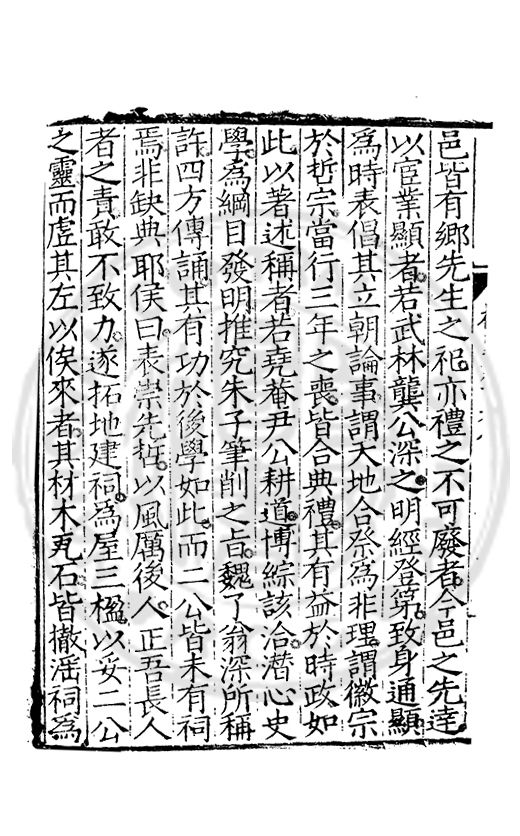 邑皆有鄉先生之祀亦禮之不可廢者今邑之先達
以宦業顯者若武林龔公深之明經登第致身通顯
為時表倡其立朝論事謂天地合祭為非理謂徽宗
於哲宗當行三年之喪皆合典禮其有益於時政如
此以著述稱者若堯菴尹公耕道博綜該洽潛心史
學為綱目發明推究朱子筆削之旨魏了翁深所稱
許四方傳誦其有功於後學如此而二公皆未有祠
焉非缺典耶侯曰表崇先哲以風厲後人正吾長人
者之責敢不致力遂拓地建祠為屋三楹以妥二公
之靈而虛其左以俟來者其材木瓦石皆撤滛祠為